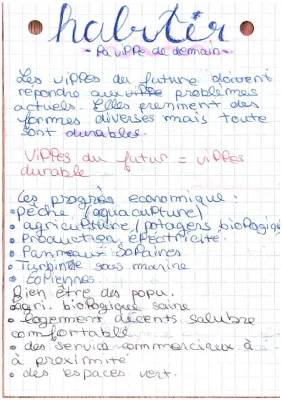 habiter
- la ville de demain -
Les villes du future doivent
repondre aux ville problèmes
actuels. Elles prennent des
formes diverses mais toute
sont durables.
Villes du futur = villes
durable
Les progrès économique :
• Pêche / (aquaculture)
• agriculture / potagers biologiqu
• Production électricité.
• Panneaux solaires
• Turbine sous marine
• Eoliennes
Bien être des popu.
• agri. biologique saine
• logement décents salubre
comfortable
• des service commerciaux à
à proximité
• des espaces vert.